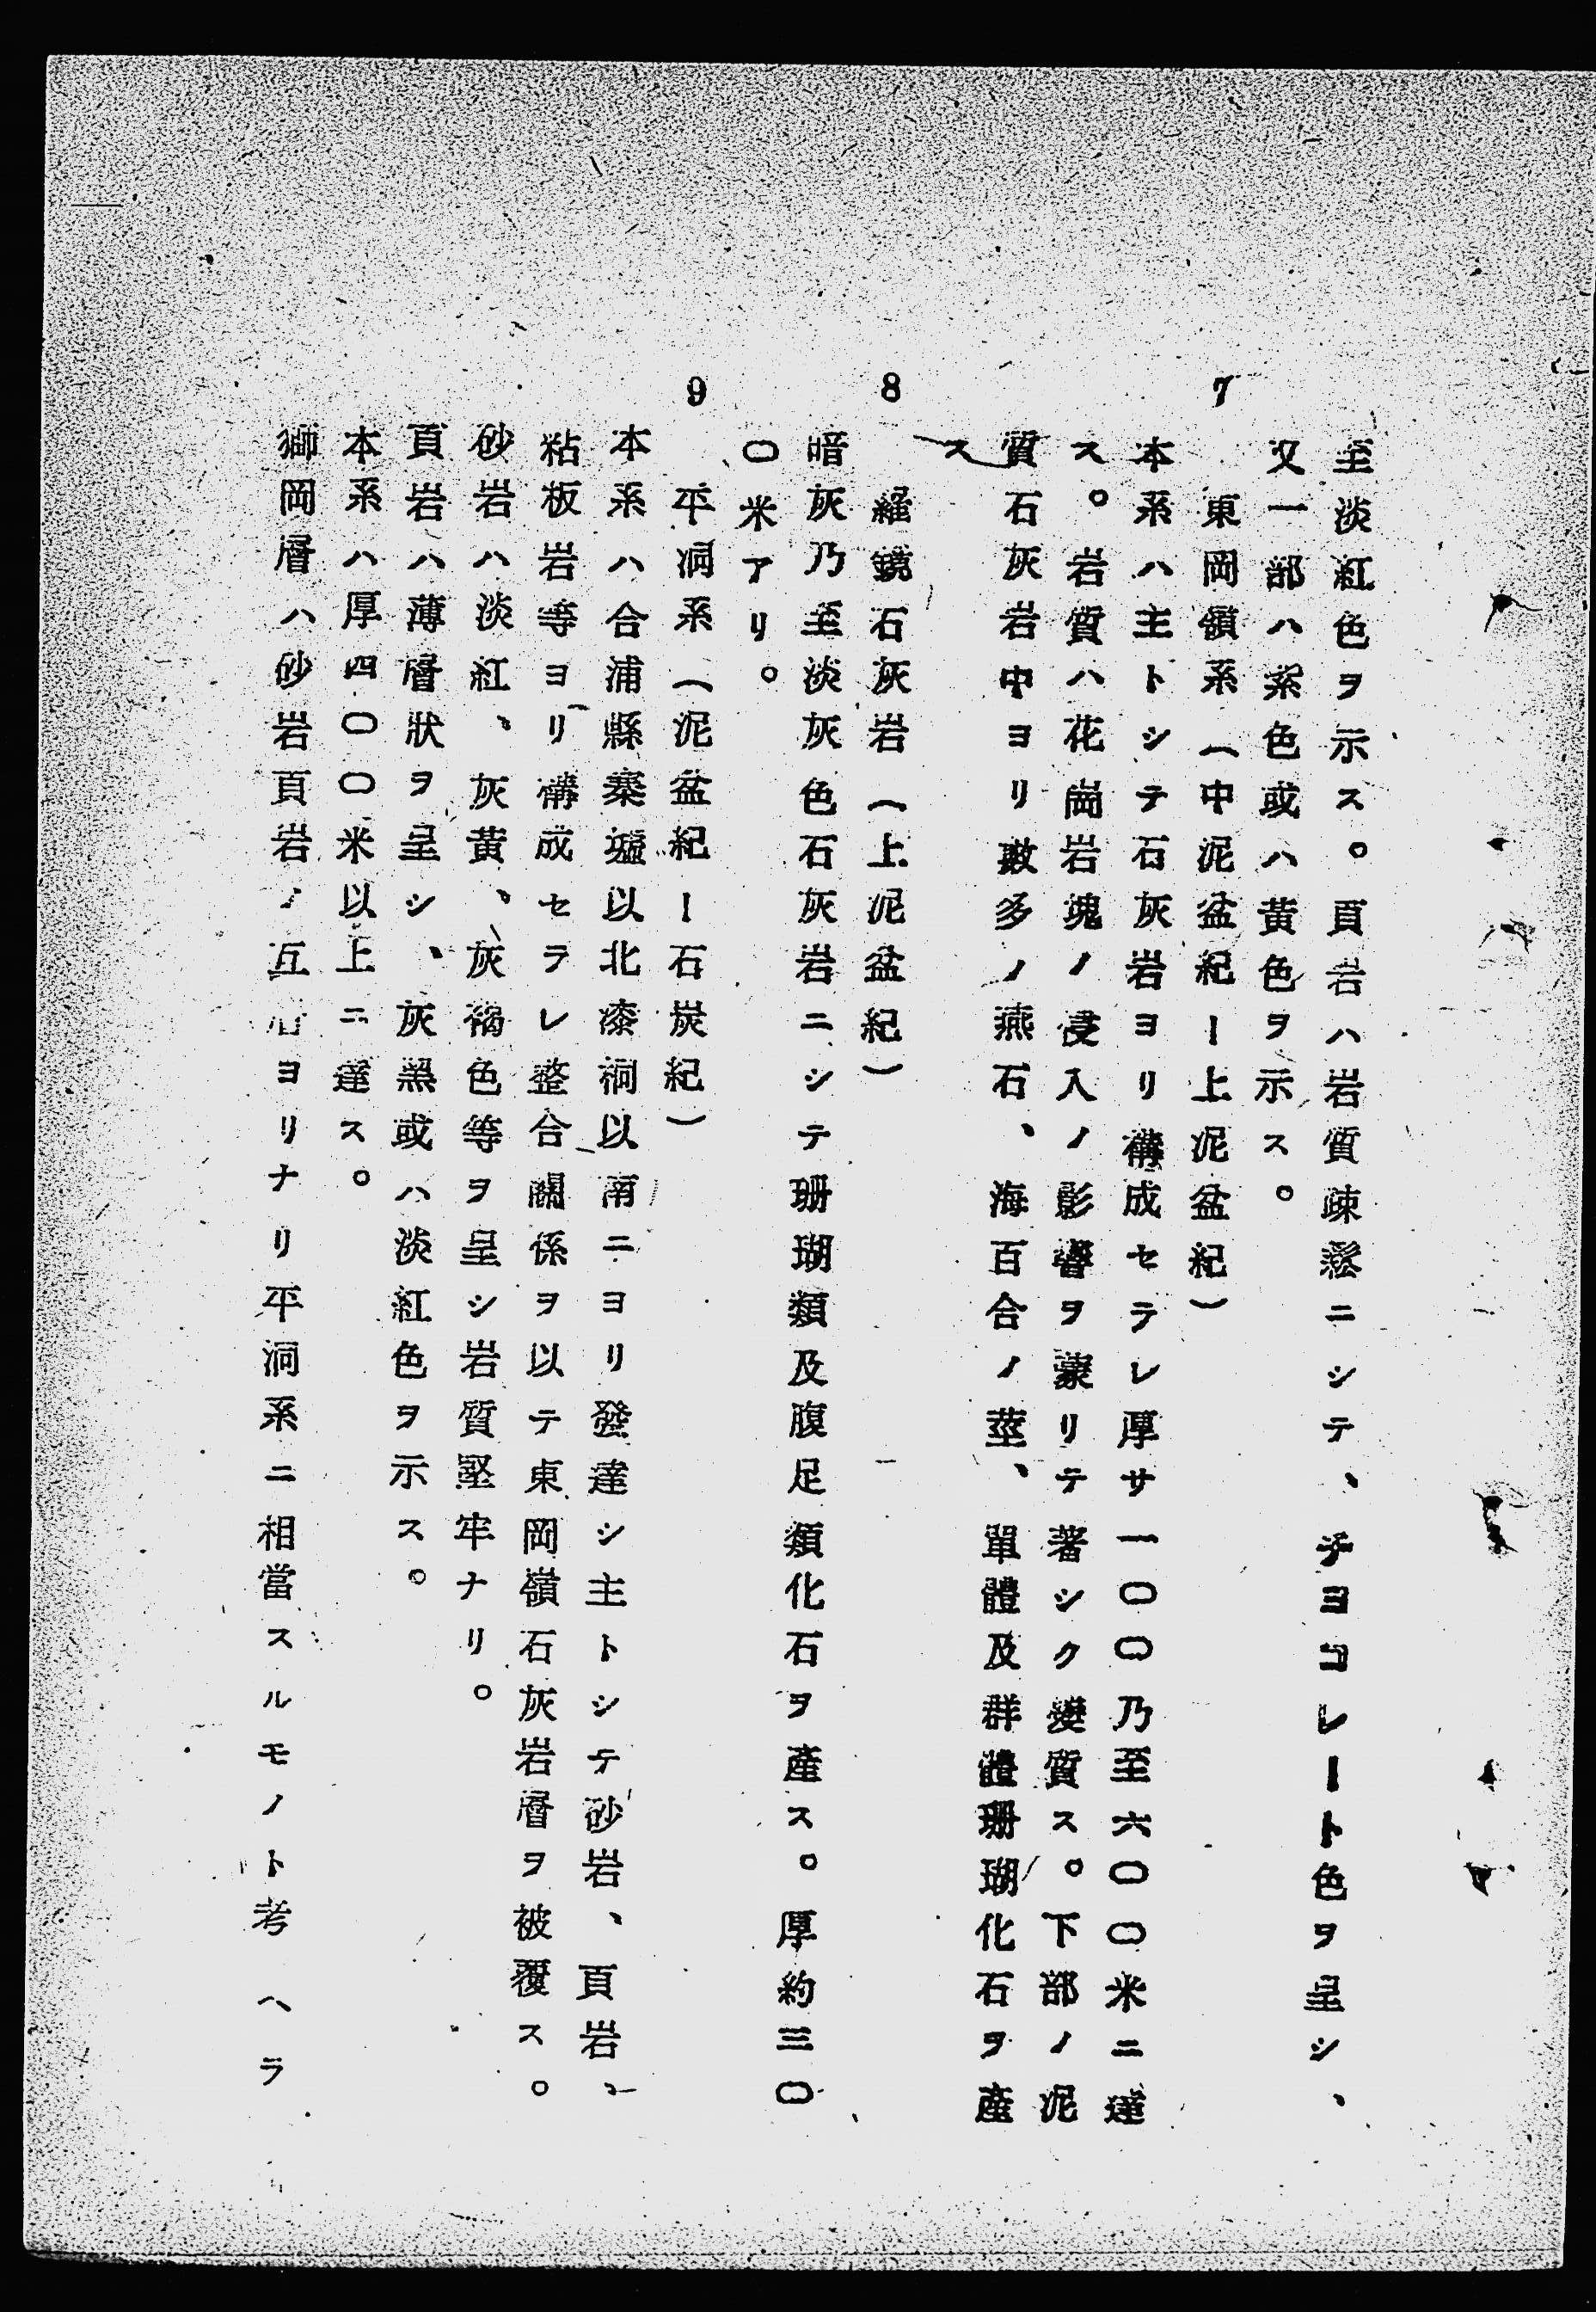 至淡紅色ヲ示ス。頁岩ハ岩質疎鬆ニシテ、チヨコレート色ヲ呈シ、
又一部ハ紫色或ハ黄色ヲ示ス。
7 東岡嶺系（中泥盆紀ー上泥盆紀）
本系ハ主トシテ石灰岩ヨリ構成セラレ厚サ一〇〇乃至六〇〇米ニ達
ス。岩質ハ花崗岩塊ノ侵入ノ影響ヲ蒙リテ著シク變質ス。下部ノ泥
質石灰岩中ヨリ數多ノ燕石、海百合ノ莖、單體及群體珊瑚化石ヲ產
ス
8 鏡石灰岩（上泥盆紀）
暗灰乃至淡灰色石灰岩ニシテ珊瑚類及腹足類化石ヲ產ス。厚約三〇
〇米アリ。
9 平洞系（泥盆紀ー石炭紀）
本系ハ合浦縣寨墟以北漆洞以南ニヨリ發達シ主トシテ砂岩、頁岩、
粘板岩等ヨリ構成セラレ整合關係ヲ以テ東岡嶺石灰岩層ヲ被覆ス。
砂岩ハ淡紅、灰黄、灰褐色等ヲ呈シ岩質堅牢ナリ。
頁岩ハ薄層狀ヲ呈シ、灰黑或ハ淡紅色ヲ示ス。
本系ハ厚四〇〇米以上ニ達ス。
獅岡層ハ砂岩頁岩ノ互ヨリナリ平洞系ニ相當スルモノト考ヘラ